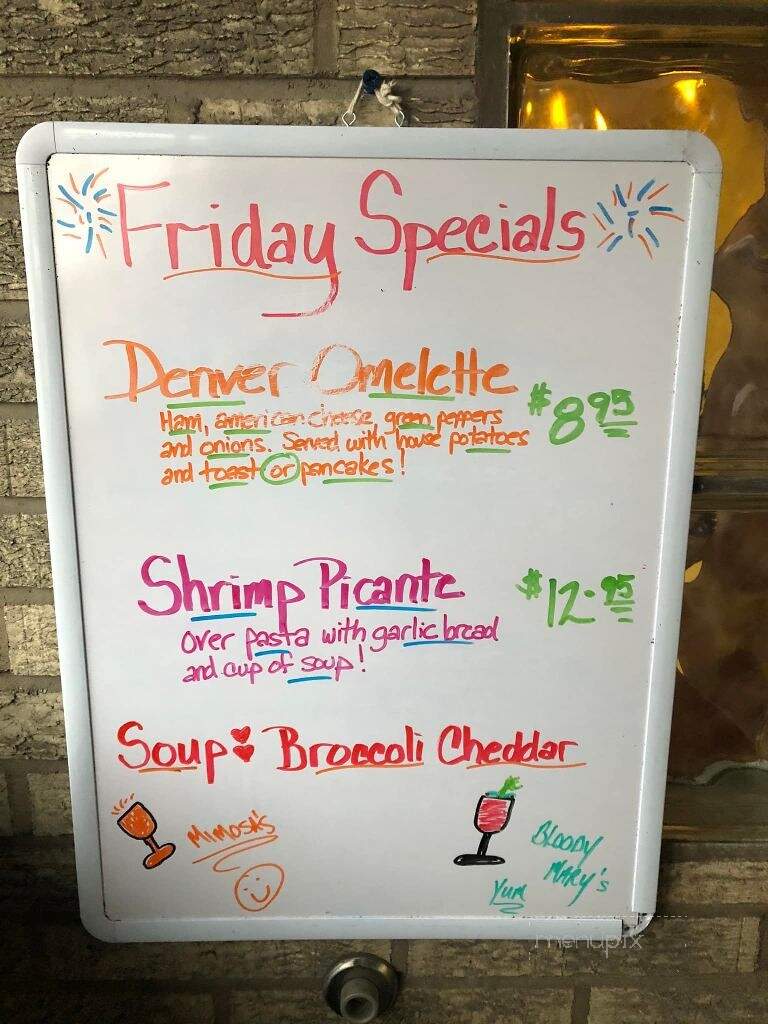 Friday Specials
Denver Omelette
Ham, american cheese, green peppers
and onions. Served with house potatoes
and toast or pancakes!
$8.95
Shrimp Picante
over pasta with garlic bread
and cup of soup!
$12.95
Soup: Broccoli Cheddar
Mimosa's
Bloody
Mary's
Yum
menupix